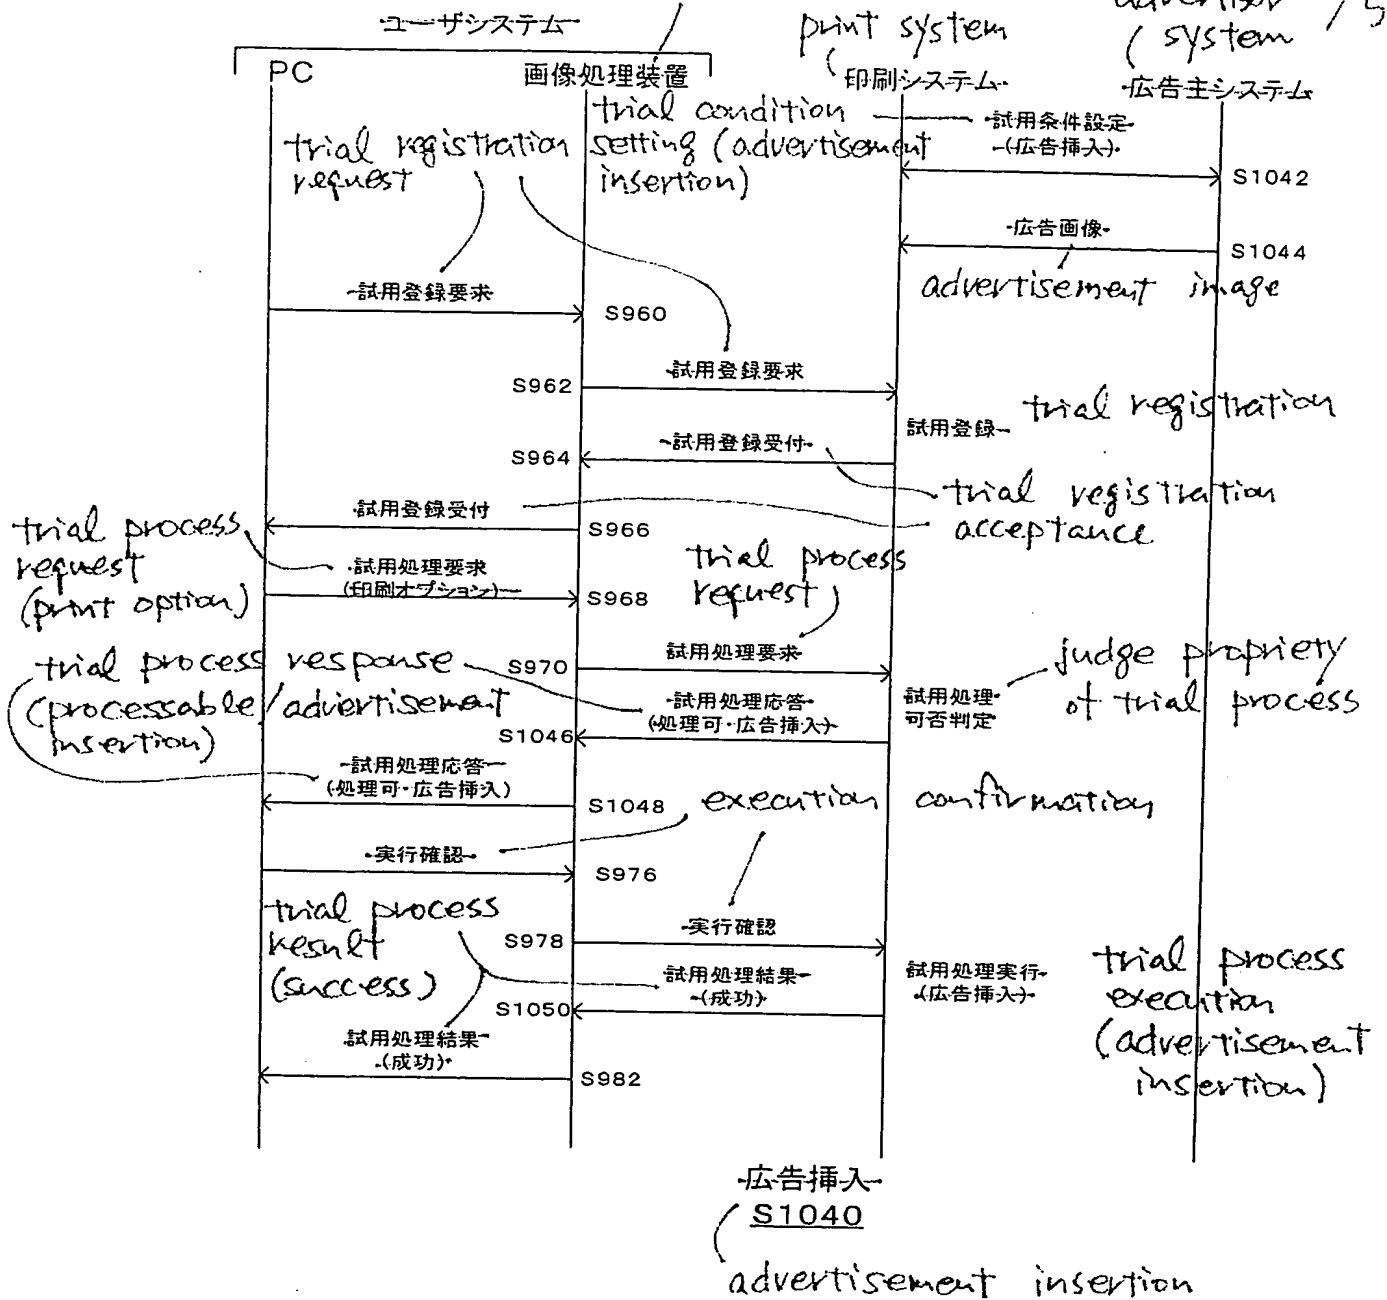 advertiser
ユーザシステム
print system
system
PC
画像処理装置
印刷システム
広告主システム
trial condition
setting (advertisement
insertion)
試用条件設定
(広告挿入)
S1042
trial registration
request
広告画像
S1044
advertisement image
試用登録要求
S960
試用登録要求
S962
試用登録
trial registration
試用登録受付
S964
trial registration
acceptance
試用登録受付
S966
trial process
request
(print option)
試用処理要求
(印刷オプション)
S968
trial process
request
試用処理要求
S970
judge propriety
of trial process
trial process response
(processable/advertisement
insertion)
試用処理応答
(処理可・広告挿入)
S1046
試用処理
可否判定
試用処理応答
(処理可・広告挿入)
S1048
execution confirmation
実行確認
S976
trial process
result
(success)
実行確認
S978
試用処理結果
(成功)
S1050
試用処理実行
(広告挿入)
trial process
execution
(advertisement
insertion)
試用処理結果
(成功)
S982
広告挿入
S1040
advertisement insertion